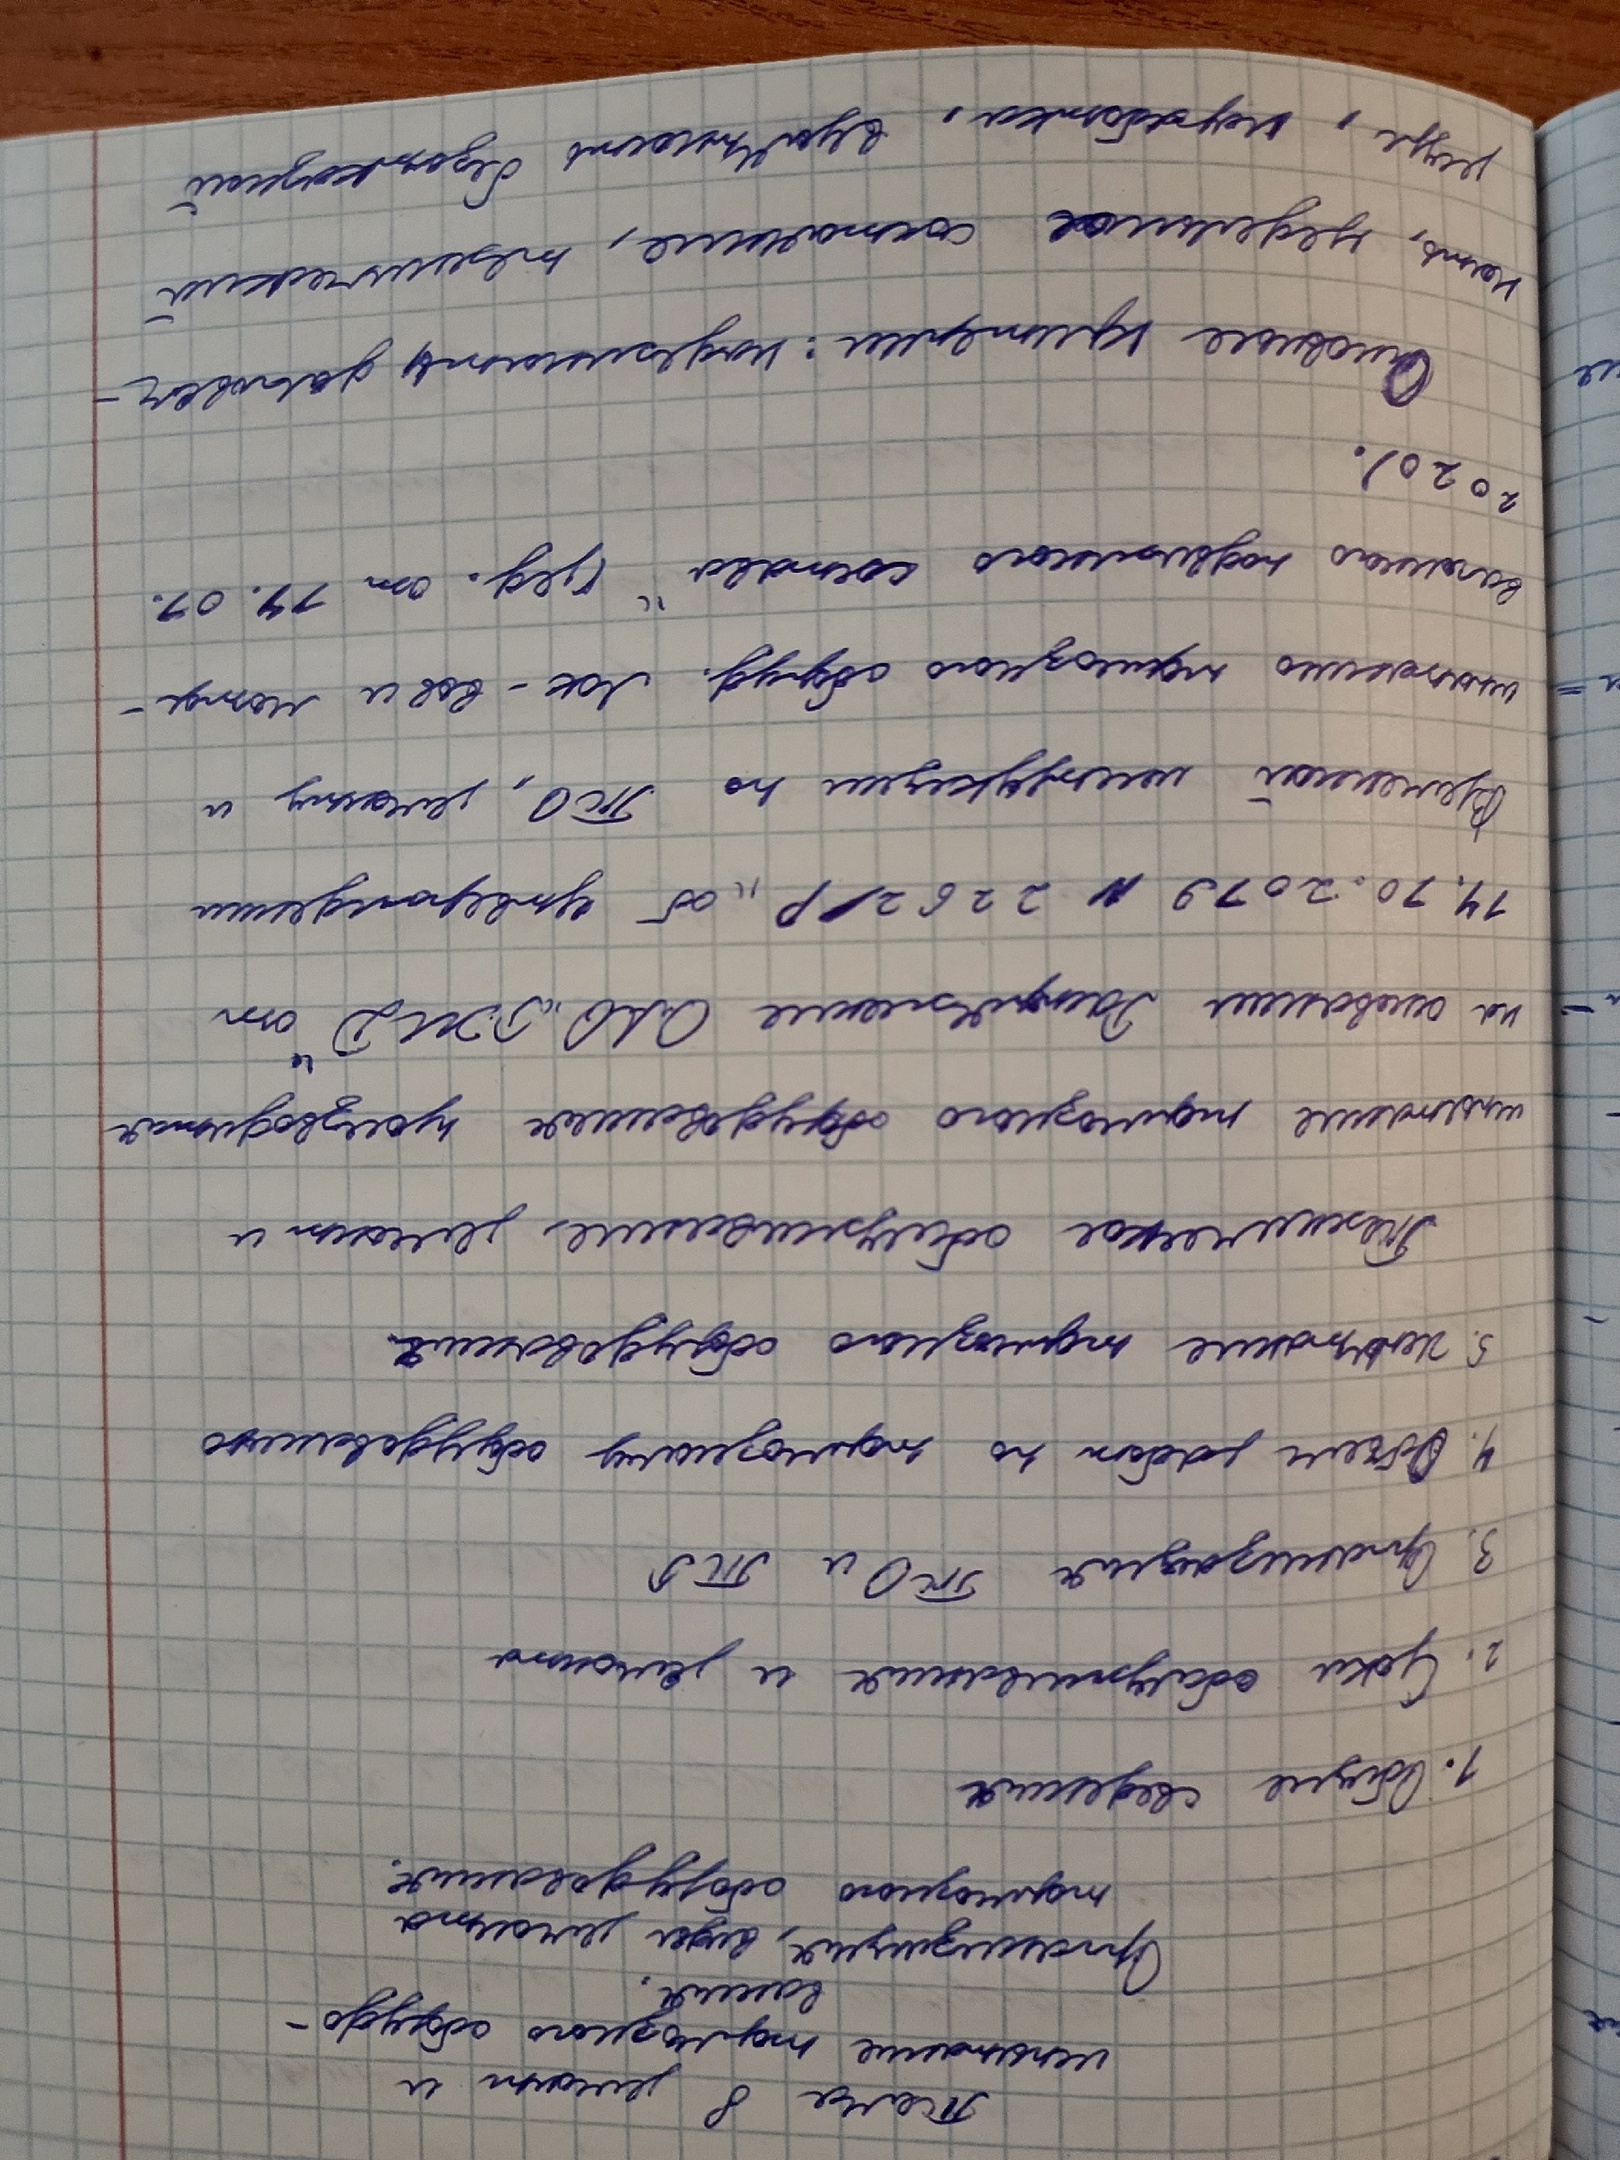 Тема 8 ремонт и
испытание тормозного оборудо-
вания.
Организация, виды ремонта
тормозного оборудования.
1. Общие сведения
2. Сроки обслуживания и ремонта
3. Организация ТО и ТР
4. Объем работ по тормозному оборудованию
5. Испытание тормозного оборудования
Техническое обслуживание, ремонт и
испытание тормозного оборудования производится
на основании Распоряжение ОАО „РЖД“ от
14.10.2019 N 2262/р „об утверждении
Временной инструкции по ТО, ремонту и
испытанию тормозного обруд. лок-вов и мотор-
вагонного подвижного состава“ (ред. от 14.01.
2020).
Основные критерии: надежность, долговеч-
ность, предельное состояние, технический
ресурс, наработка, вероятность безотказной